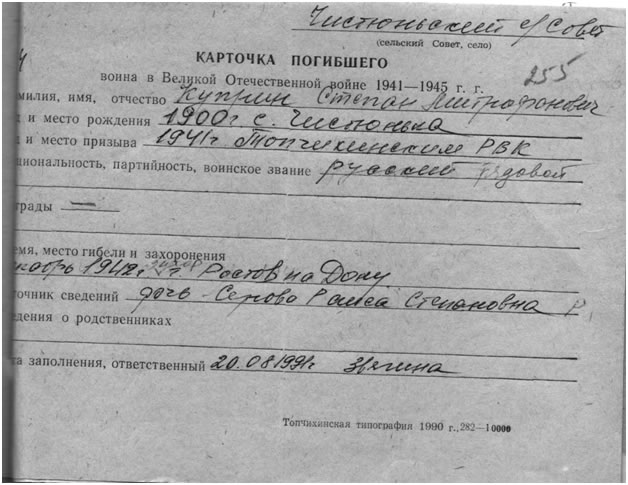 Чистюньский с/Совет
(сельский Совет, село)
КАРТОЧКА ПОГИБШЕГО
воина в Великой Отечественной войне 1941—1945 г. г.
255
милия, имя, отчество Куприн Степан Митрофанович
д и место рождения 1900г с. Чистюнька
д и место призыва 1941г Топчихинским РВК
циональность, партийность, воинское звание русский рядовой
грады —
емя, место гибели и захоронения
кабрь 1942г. г. Ростов на Дону
точник сведений дочь - Серова Раиса Степановна
дения о родственниках
та заполнения, ответственный 20.08.1991г Звягина
Топчихинская типография 1990 г., 282—10000